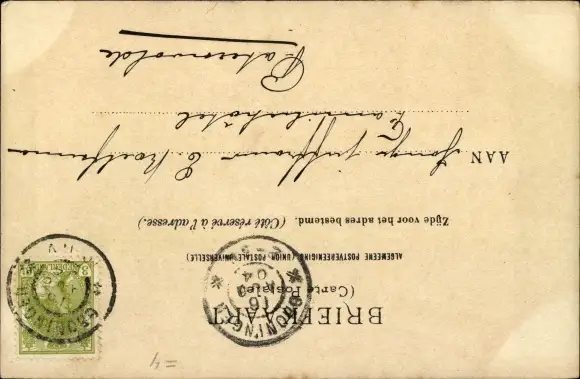 BRIEFKAART
(Carte Postale)
ALGEMEENE POSTVEREENIGING (UNION POSTALE UNIVERSELLE)
Zijde voor het adres bestemd. (Côté réservé à l'adresse.)
AAN Jonge juffrouw E.
Familiehôtel
Paterswolde
GRONINGEN
GRONINGEN